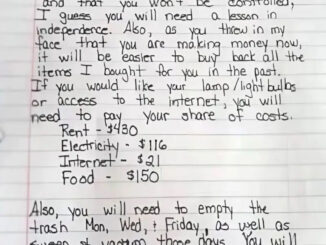 and that you won't be controlled,
I guess you will need a lesson in
independence. Also, as you threw in my
face that you are making money now,
it will be easier to buy back all the
items I bought for you in the past.
If you would like your lamp/lightbulbs
or access to the internet, you will
need to pay your share of costs.
Rent - $430
Electricity - $116
Internet - $21
Food - $150
Also, you will need to empty the
trash Mon, Wed, + Friday, as well as
sweep + vacuum those days. You will